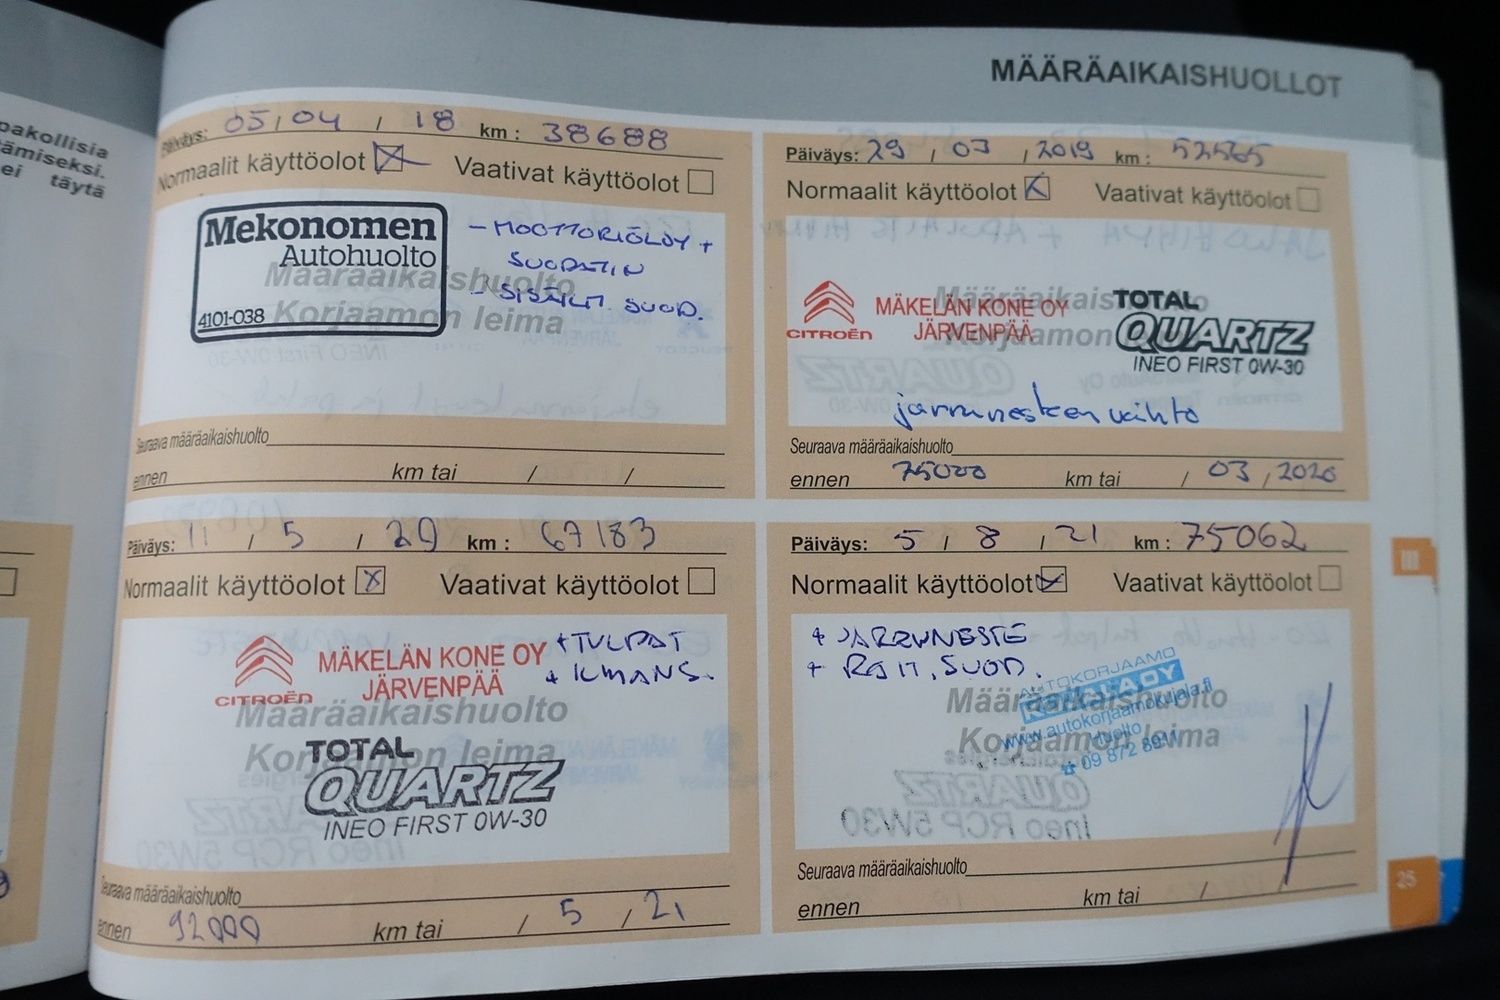 pakollisia
ämiseksi.
ei täytä
MÄÄRÄAIKAISHUOLLOT
Päiväys: 05 / 04 / 18 km : 38688
Normaalit käyttöolot Vaativat käyttöolot
Mekonomen
Autohuolto
4101-038
- MOOTTORIÖLJY +
SUODATIN
- SISÄILM. SUOD.
Määräaikaishuolto
Korjaamon leima
Seuraava määräaikaishuolto
ennen km tai / /
Päiväys: 29 / 03 / 2019 km : 52565
Normaalit käyttöolot Vaativat käyttöolot
CITROËN
MÄKELÄN KONE OY
JÄRVENPÄÄ
Määräaikaishuolto
Korjaamon leima
TOTAL
QUARTZ
INEO FIRST 0W-30
jarrunesteen vaihto
Seuraava määräaikaishuolto
ennen 75000 km tai / 03 / 2020
Päiväys: 11 / 5 / 20 km : 67183
Normaalit käyttöolot Vaativat käyttöolot
CITROËN
MÄKELÄN KONE OY
JÄRVENPÄÄ
+ TULPAT
+ ILMANS.
Määräaikaishuolto
Korjaamon leima
TOTAL
QUARTZ
INEO FIRST 0W-30
Seuraava määräaikaishuolto
ennen 92000 km tai / 5 / 21
Päiväys: 5 / 8 / 21 km : 75062
Normaalit käyttöolot Vaativat käyttöolot
+ JARRUNESTE
+ RAIT. SUOD.
Määräaikaishuolto
Korjaamon leima
AUTOKORJAAMO
www.autokorjaamokujala.fi
Huolto
09 872
Seuraava määräaikaishuolto
ennen km tai / /
25